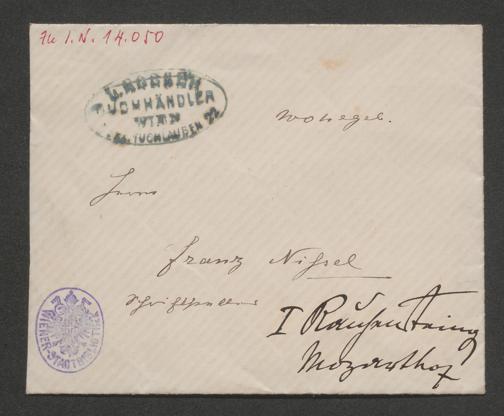 Zu I.N. 14.050
L. ROSNER
BUCHHÄNDLER
WIEN
TUCHLAUBEN 22
Wohlgeb.
Herrn
Franz Nissel
Schriftsteller
I Rauhensteing
Mozarthof
WIENER-STADTBIBLIOTHEK